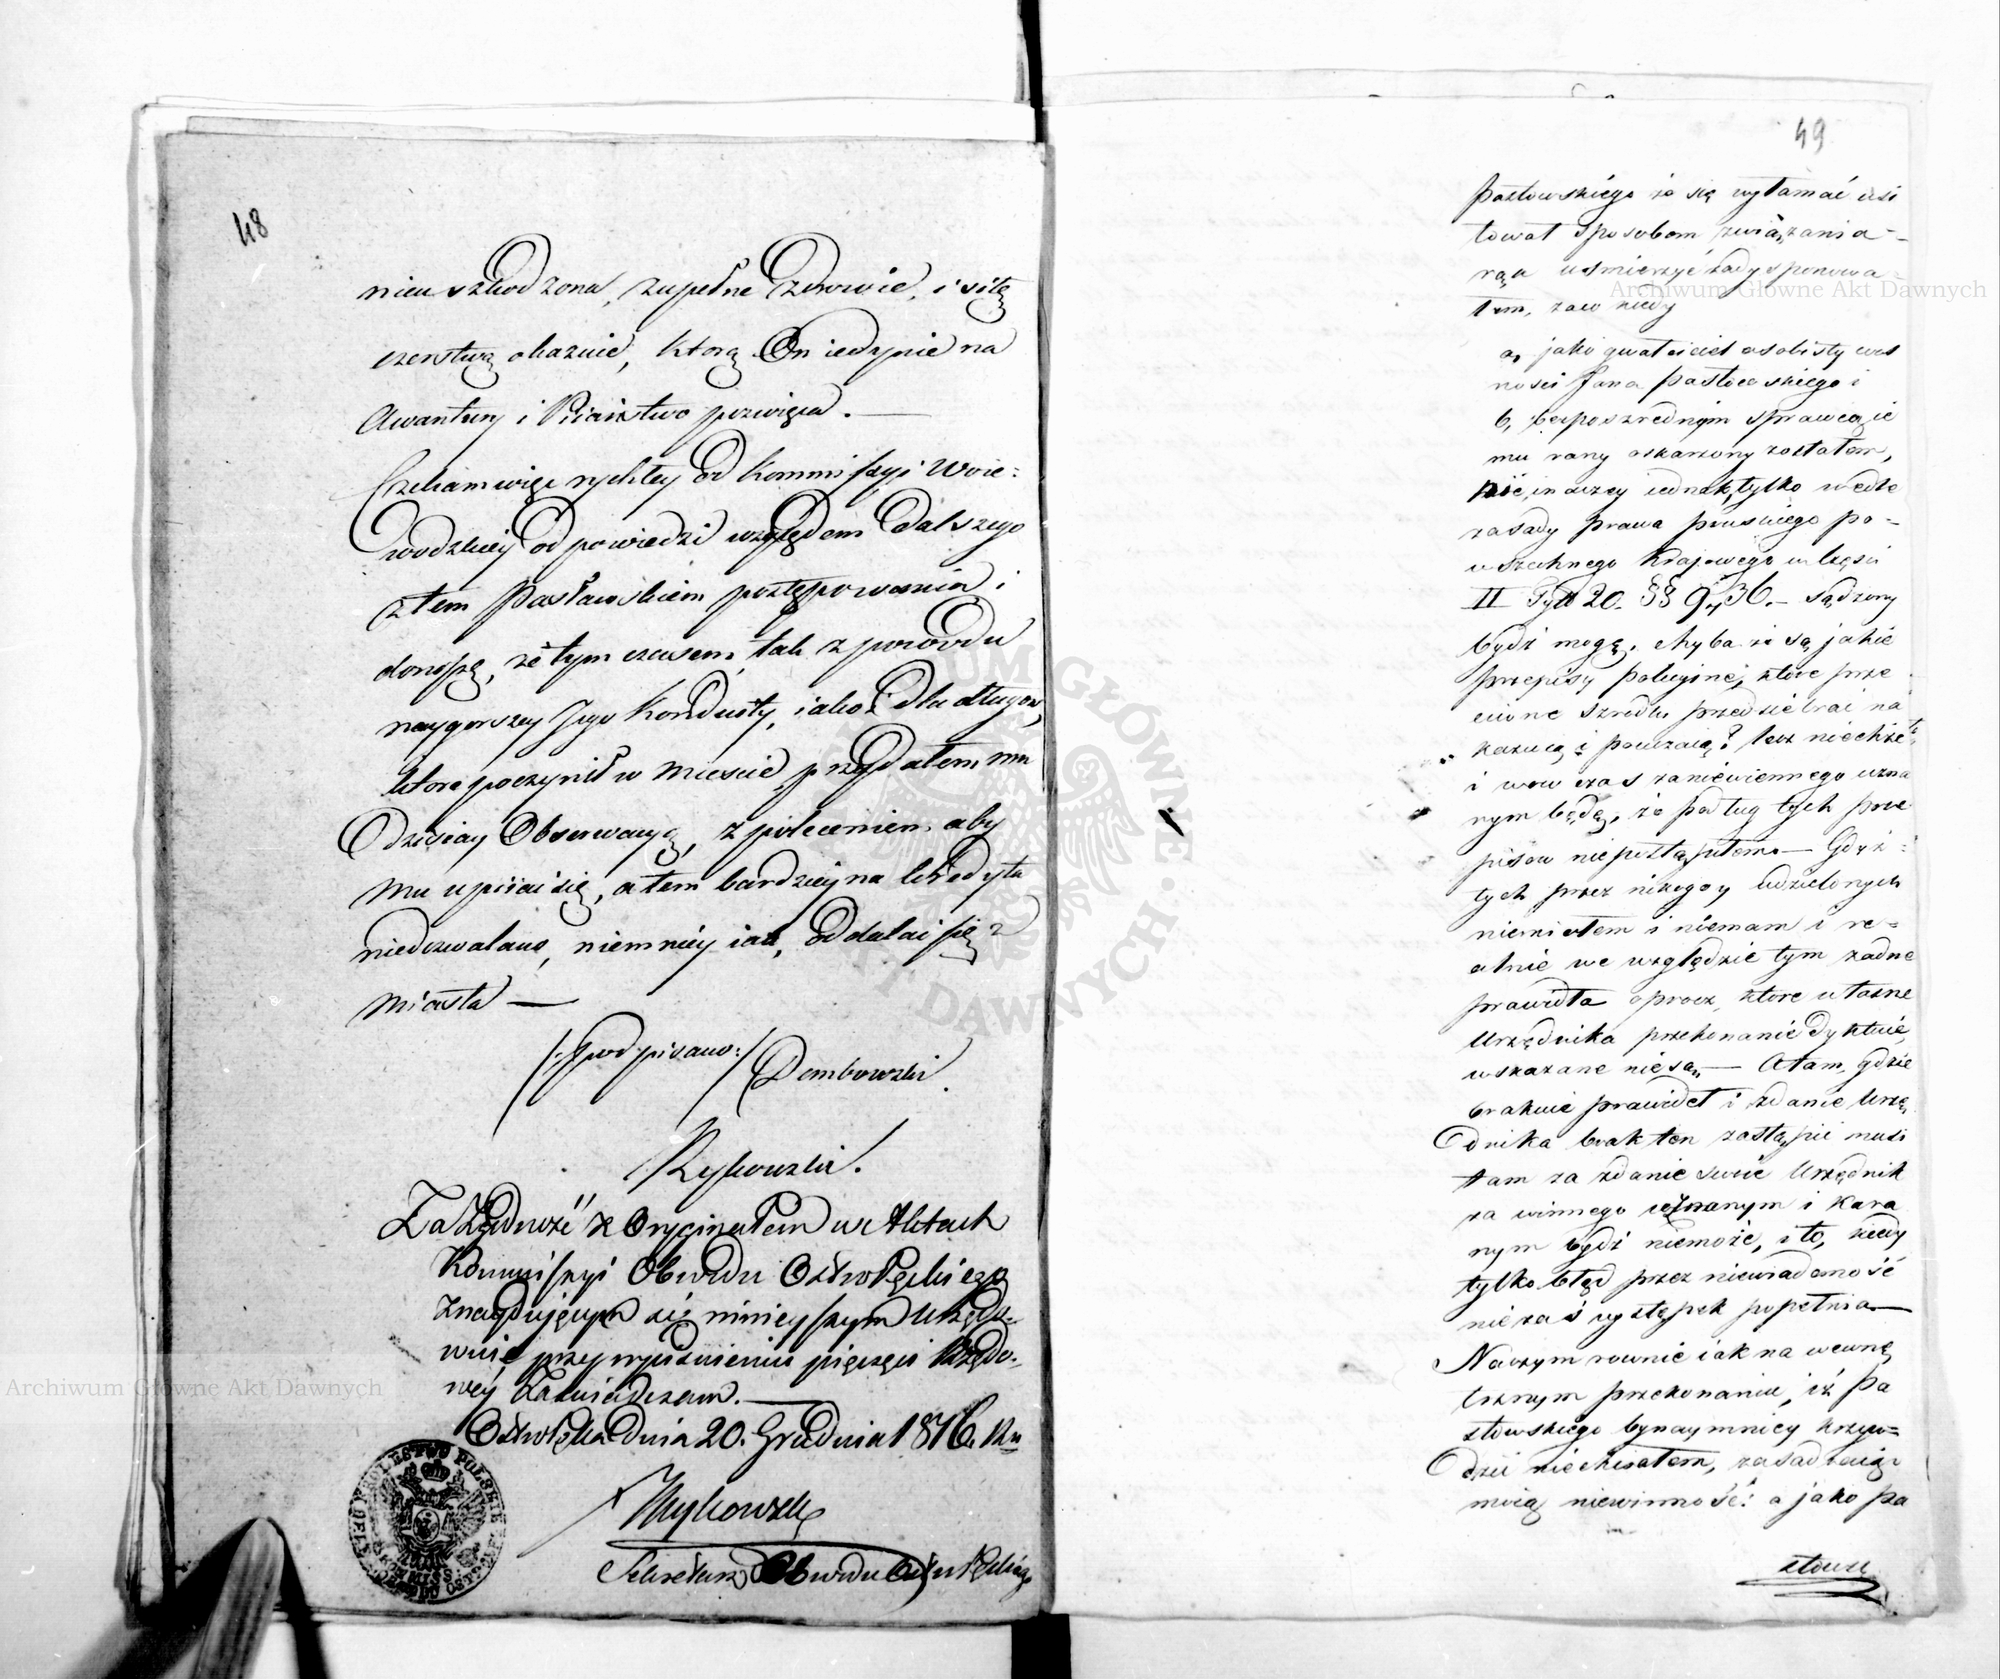 48
nieuszkodzona, zupełne Zdrowie, i siłę
czerstwą okazuie, którą On iedynie na
Awantury i Piiaństwo poświęca. —
Czekam więc rychłey od Kommissyi Woie=
wodzkiey odpowiedzi względem dalszego
z tem Pastowskiem postępowania i
donoszę, że tym czasem, tak z powodu
naygorszey Jego Konduity, iakoż dla długow,
które poczynił w Mieście przydałem mu
Odzisiay Obserwacyą, z poleceniem aby
mu upiiać się, a tem bardziey na kredyta
niedozwalano, niemniey iak, oddalać się z
Miasta —
/:podpisano:/ Dembowski.
Rykowski.
Za Zgodność z Oryginałem w Aktach
Kommissyi Obwodu Ostrołęckiego
znayduiącym się ninieyszym Urzędo-
wnie przy wyciśnieniu pieczęci Urzędo-
wéy Zaświadczam. —
Ostrołęka dnia 20. Grudnia 1816. Ru
Rykowski
Sekretarz Obwodu Ostrołęckiego
KROLESTWO POLSKIE
49
Pastowskiego że się wyłamać usi
łował sposobem związania =
rąk uśmierzyć zadysponowa =
łem, zaco kiedy
a, jako gwałciciel osobisty wol
nosci Jana Pastowskiego i
b, bezposzrednym sprawcą ie
mu rany oskarzony zostałem,
nie inaczey iednak, tylko wedle
zasady prawa pruskiego po-
wszechnego Krajowego w Części
II Tyt 20. §§ 9, 36. — sądzony
bydź mogę, chyba że są jakie
przepisy policyine, które prze
ciwne szrodki przedsiebrać na
kazuią i pouczaią? lecz niechże
i wowczas za niewiennego uzna
nym będę, że podług tych prze
pisow niepostąpiłem — Gdyż =
tych przez nikogo y udzielonych
niemiałem i niemam i re=
alnie we względzie tym żadne
prawidła oprocz, ktore własne
Urzędnika przekonanie dyktuie,
wskazane nie są — A tam, gdzie
brakuie prawideł i zdanie Urzę
dnika brak ten zastąpić musi
tam za zdanie swoie Urzędnik
za winnego uznanym i kara
nym bydź niemoże, i to, kiedy
tylko błąd przez niewiadomość
nie zaś występek popełnia —
Na czym rownie iak na wewnę
trznym przekonaniu, iż Pa
stowskiego bynaymniey krzyw=
dzić niechciałem, zasadzaiąc
moią niewinność: a jako Pa
stowsk
Archiwum Główne Akt Dawnych
Archiwum Główne Akt Dawnych
ARCHIWUM GŁÓWNE AKT DAWNYCH